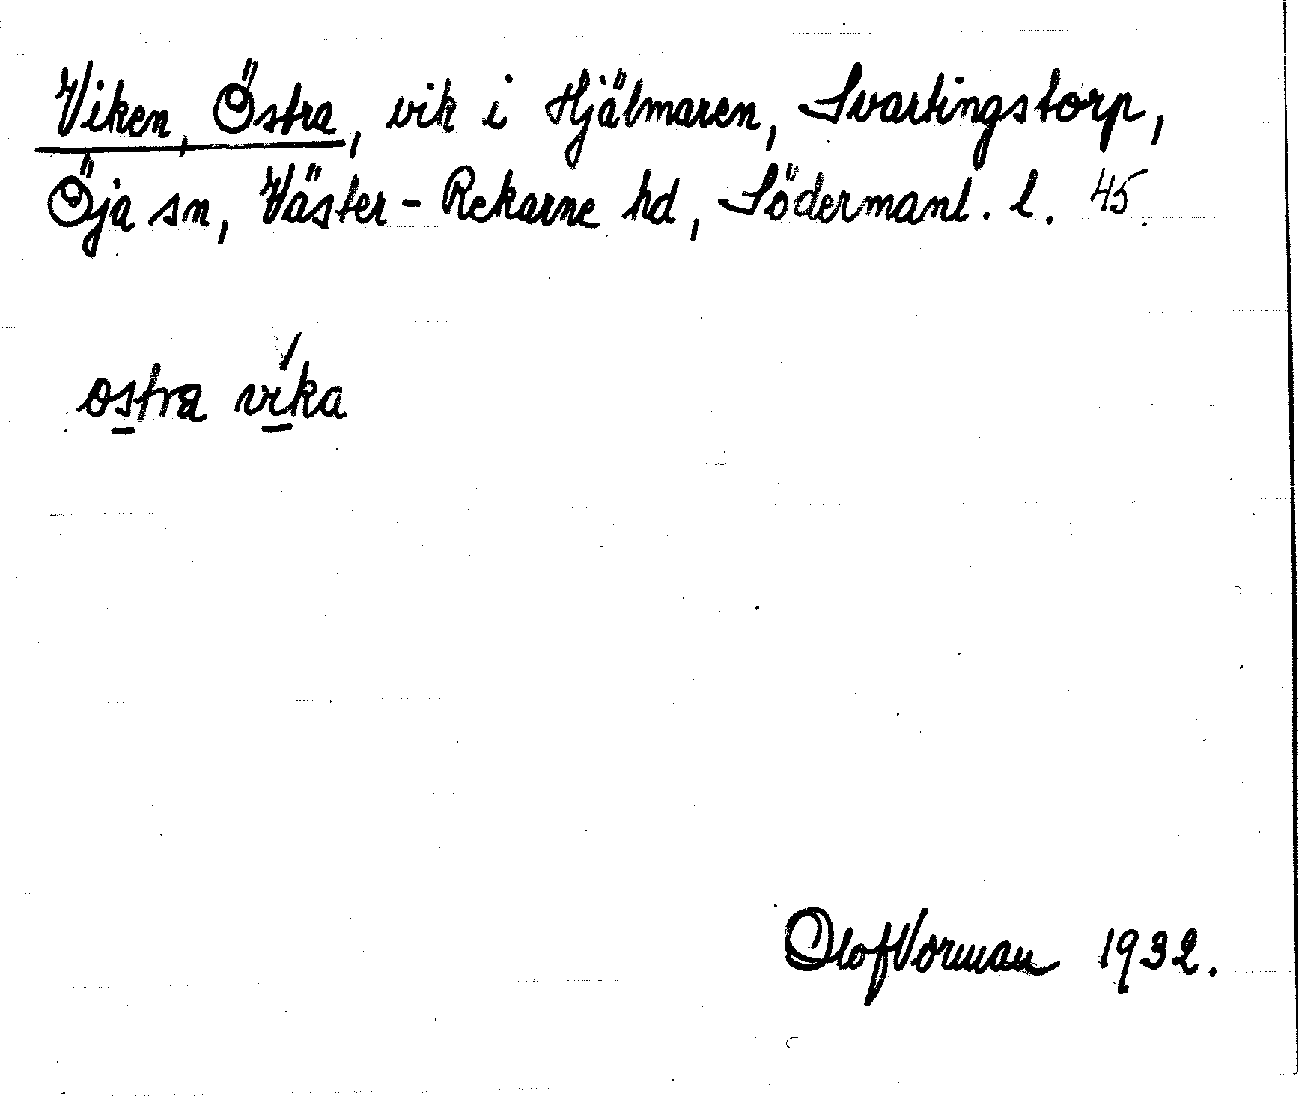 Viken, Östra, vik i Hjälmaren, Svartingstorp,
Öja sn, Väster-Rekarne hd, Södermanl. l. 45.
ostra vika
Olof Vorman 1932.